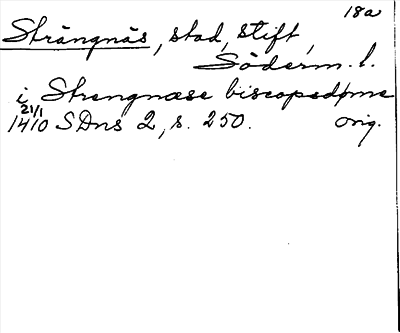 18a
Strängnäs, stad, stift,
Söderm. l.
i Strengnæse biscopsdøme
21/1
1410 SDns 2, s. 250. orig.